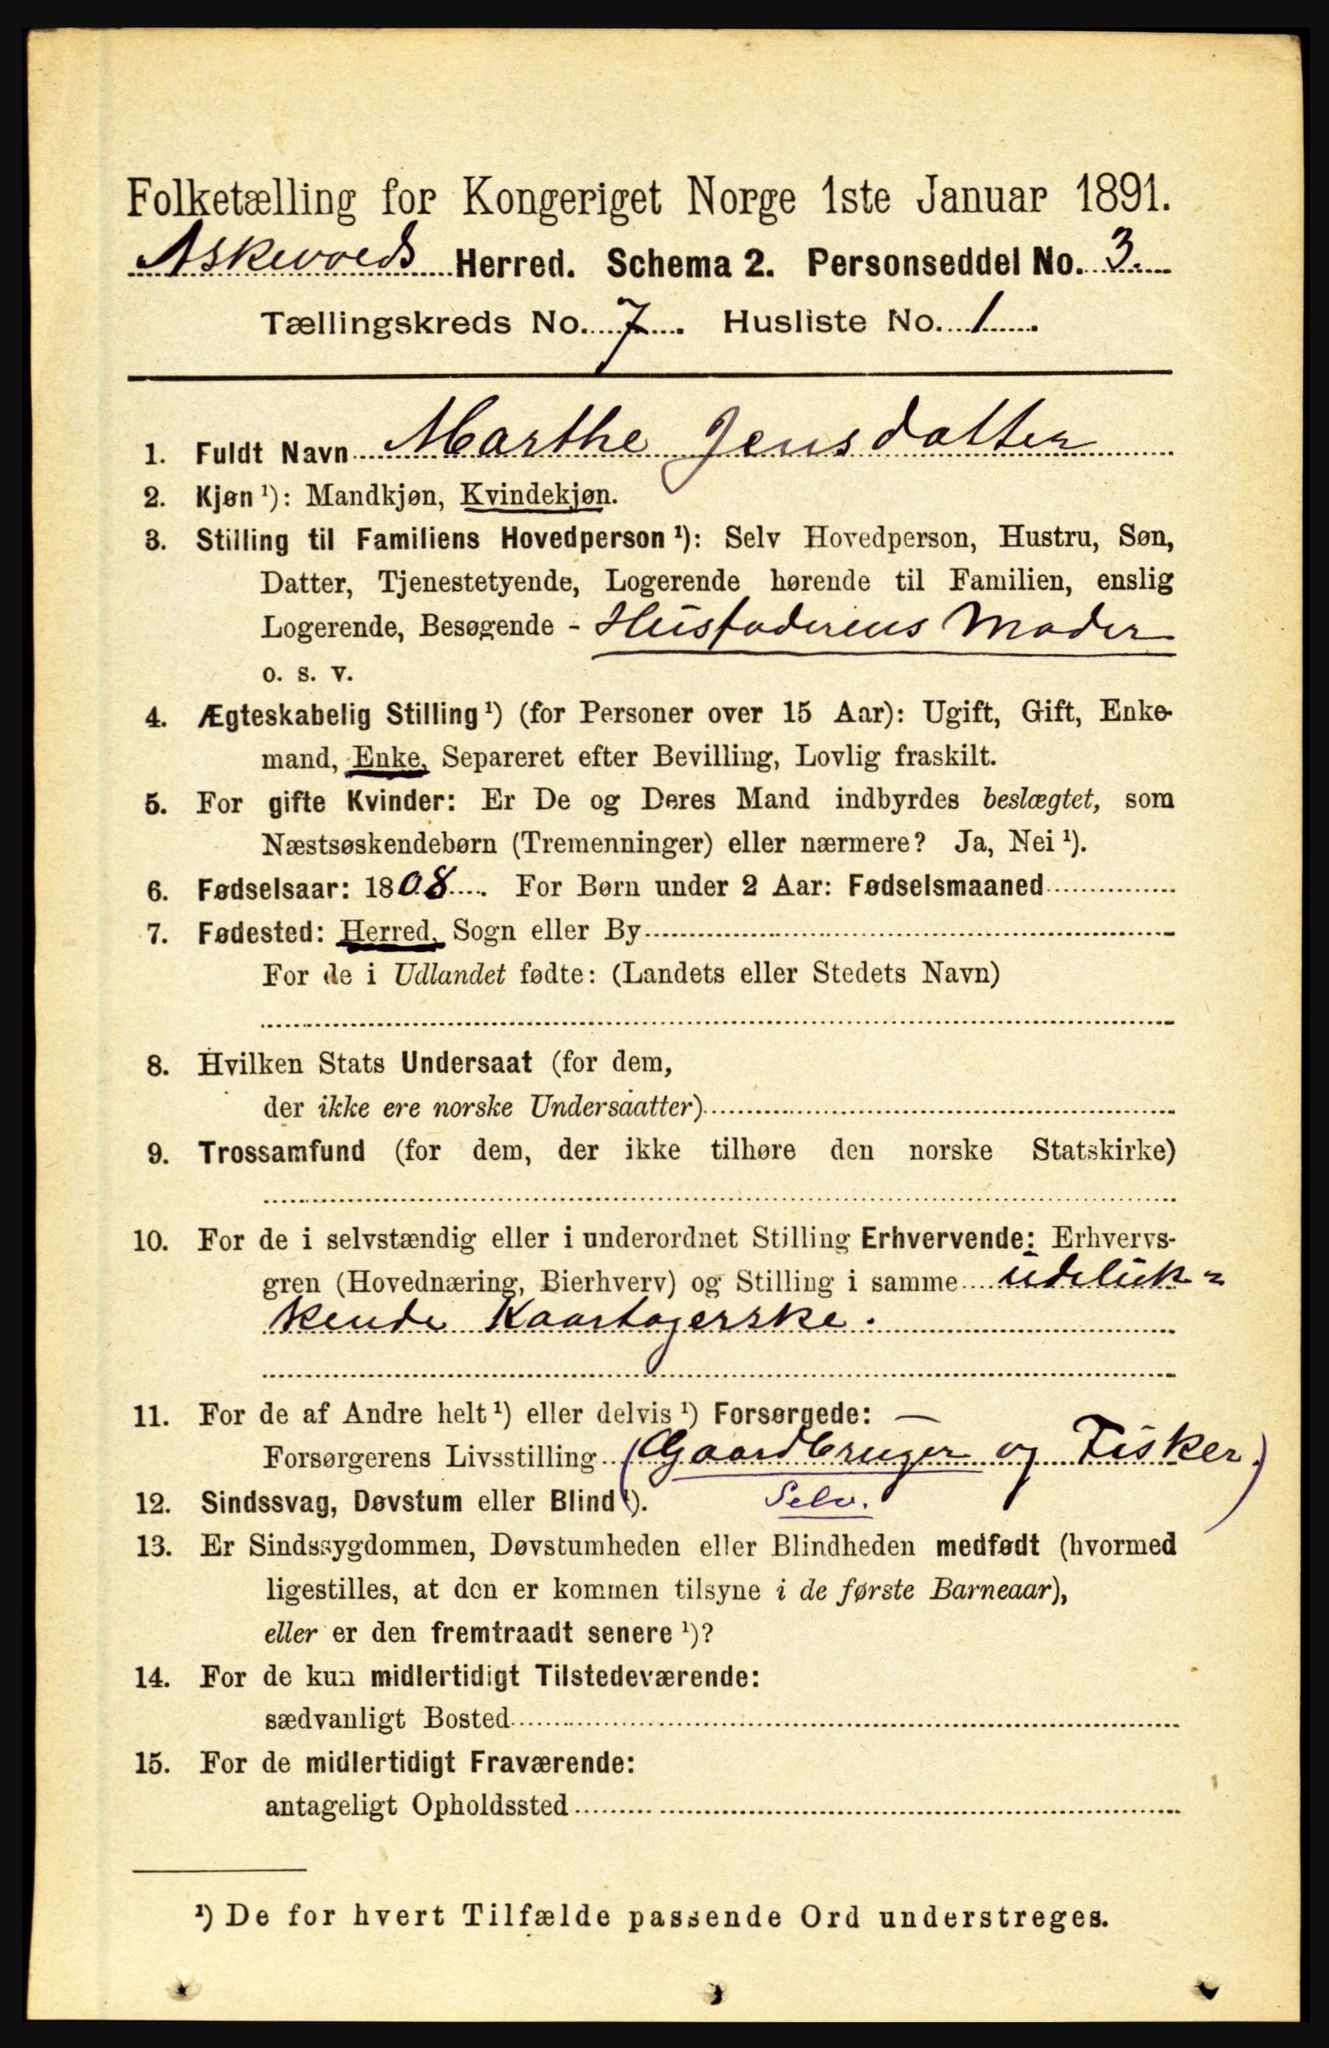 Folketælling for Kongeriget Norge 1ste Januar 1891.
Askevolds Herred. Schema 2. Personseddel No. 3.
Tællingskreds No. 7. Husliste No. 1.
1. Fuldt Navn Marthe Jensdatter
2. Kjøn ¹): Mandkjøn, Kvindekjøn.
3. Stilling til Familiens Hovedperson ¹): Selv Hovedperson, Hustru, Søn,
Datter, Tjenestetyende, Logerende hørende til Familien, enslig
Logerende, Besøgende - Husfaderens Moder
o. s. v.
4. Ægteskabelig Stilling ¹) (for Personer over 15 Aar): Ugift, Gift, Enke-
mand, Enke, Separeret efter Bevilling, Lovlig fraskilt.
5. For gifte Kvinder: Er De og Deres Mand indbyrdes beslægtet, som
Næstsøskendebørn (Tremenninger) eller nærmere? Ja, Nei ¹).
6. Fødselsaar: 1808. For Børn under 2 Aar: Fødselsmaaned
7. Fødested: Herred, Sogn eller By
For de i Udlandet fødte: (Landets eller Stedets Navn)
8. Hvilken Stats Undersaat (for dem,
der ikke ere norske Undersaatter)
9. Trossamfund (for dem, der ikke tilhøre den norske Statskirke)
10. For de i selvstændig eller i underordnet Stilling Erhvervende: Erhvervs-
gren (Hovednæring, Bierhverv) og Stilling i samme udeluk-
kende Kaartagerske.
11. For de af Andre helt ¹) eller delvis ¹) Forsørgede: —
Forsørgerens Livsstilling (Gaardbruger og Fisker.)
12. Sindssvag, Døvstum eller Blind ¹). Selv.
13. Er Sindssygdommen, Døvstumheden eller Blindheden medfødt (hvormed
ligestilles, at den er kommen tilsyne i de første Barneaar),
eller er den fremtraadt senere ¹)?
14. For de kun midlertidigt Tilstedeværende:
sædvanligt Bosted
15. For de midlertidigt Fraværende:
antageligt Opholdssted
¹) De for hvert Tilfælde passende Ord understreges.